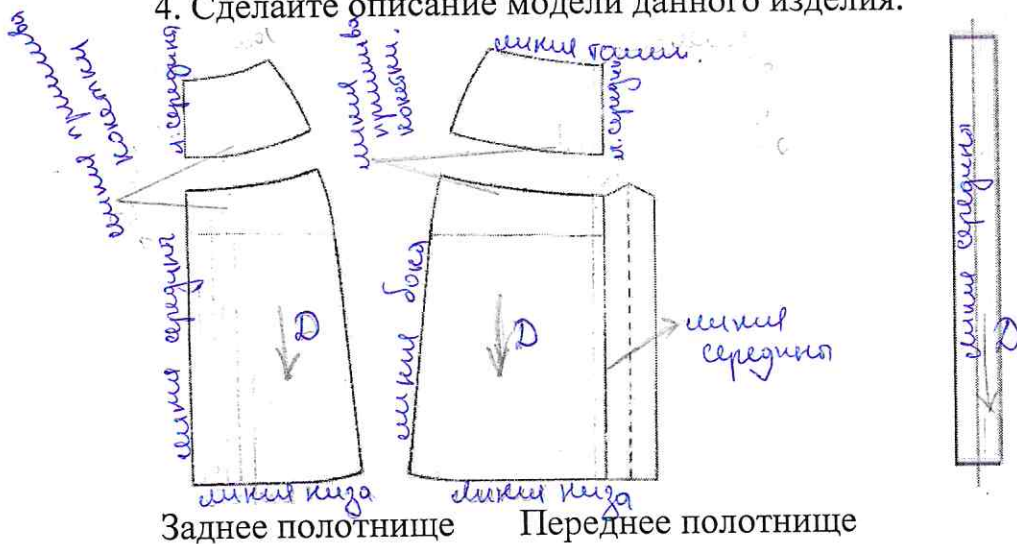 4. Сделайте описание модели данного изделия.
линия пришива
кокетки
л. середины
линия
пришива
кокетки.
линия талии.
л. середины
линия середины
линия середины
D
линия бока
D
линия
середины
D
линия низа
линия низа
Заднее полотнище Переднее полотнище